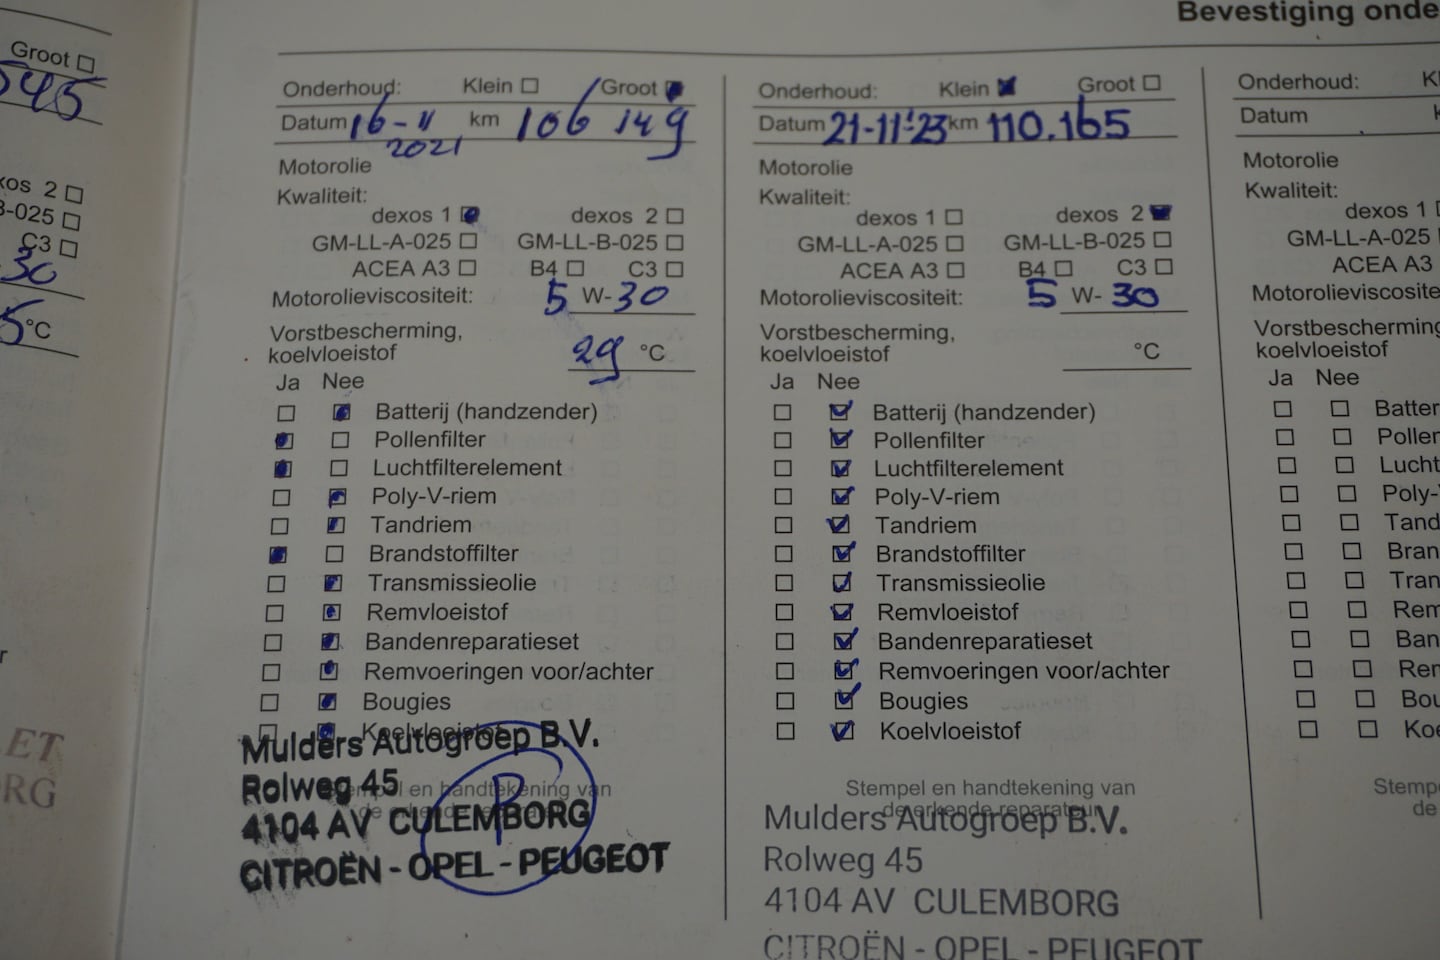 Bevestiging onde
Groot
545
xos 2
B-025
C3
30
5°C
r
ET
RG
Onderhoud: Klein Groot
Datum 16-11 km 106 149
2021
Motorolie
Kwaliteit:
dexos 1 dexos 2
GM-LL-A-025 GM-LL-B-025
ACEA A3 B4 C3
Motorolieviscositeit: 5 W-30
Vorstbescherming,
koelvloeistof 29 °C
Ja Nee
Batterij (handzender)
Pollenfilter
Luchtfilterelement
Poly-V-riem
Tandriem
Brandstoffilter
Transmissieolie
Remvloeistof
Bandenreparatieset
Remvoeringen voor/achter
Bougies
Koelvloeistof
Stempel en handtekening van
de erkende reparateur
Mulders Autogroep B.V.
Rolweg 45
4104 AV CULEMBORG
CITROËN - OPEL - PEUGEOT
Onderhoud: Klein Groot
Datum 21-11-'23 km 110.165
Motorolie
Kwaliteit:
dexos 1 dexos 2
GM-LL-A-025 GM-LL-B-025
ACEA A3 B4 C3
Motorolieviscositeit: 5 W- 30
Vorstbescherming,
koelvloeistof °C
Ja Nee
Batterij (handzender)
Pollenfilter
Luchtfilterelement
Poly-V-riem
Tandriem
Brandstoffilter
Transmissieolie
Remvloeistof
Bandenreparatieset
Remvoeringen voor/achter
Bougies
Koelvloeistof
Stempel en handtekening van
de erkende reparateur
Mulders Autogroep B.V.
Rolweg 45
4104 AV CULEMBORG
CITROËN - OPEL - PEUGEOT
Onderhoud: Kl
Datum
Motorolie
Kwaliteit:
dexos 1
GM-LL-A-025
ACEA A3
Motorolieviscosite
Vorstbescherming
koelvloeistof
Ja Nee
Batter
Pollen
Lucht
Poly-
Tand
Bran
Tran
Rem
Ban
Rem
Bou
Koe
Stemp
de